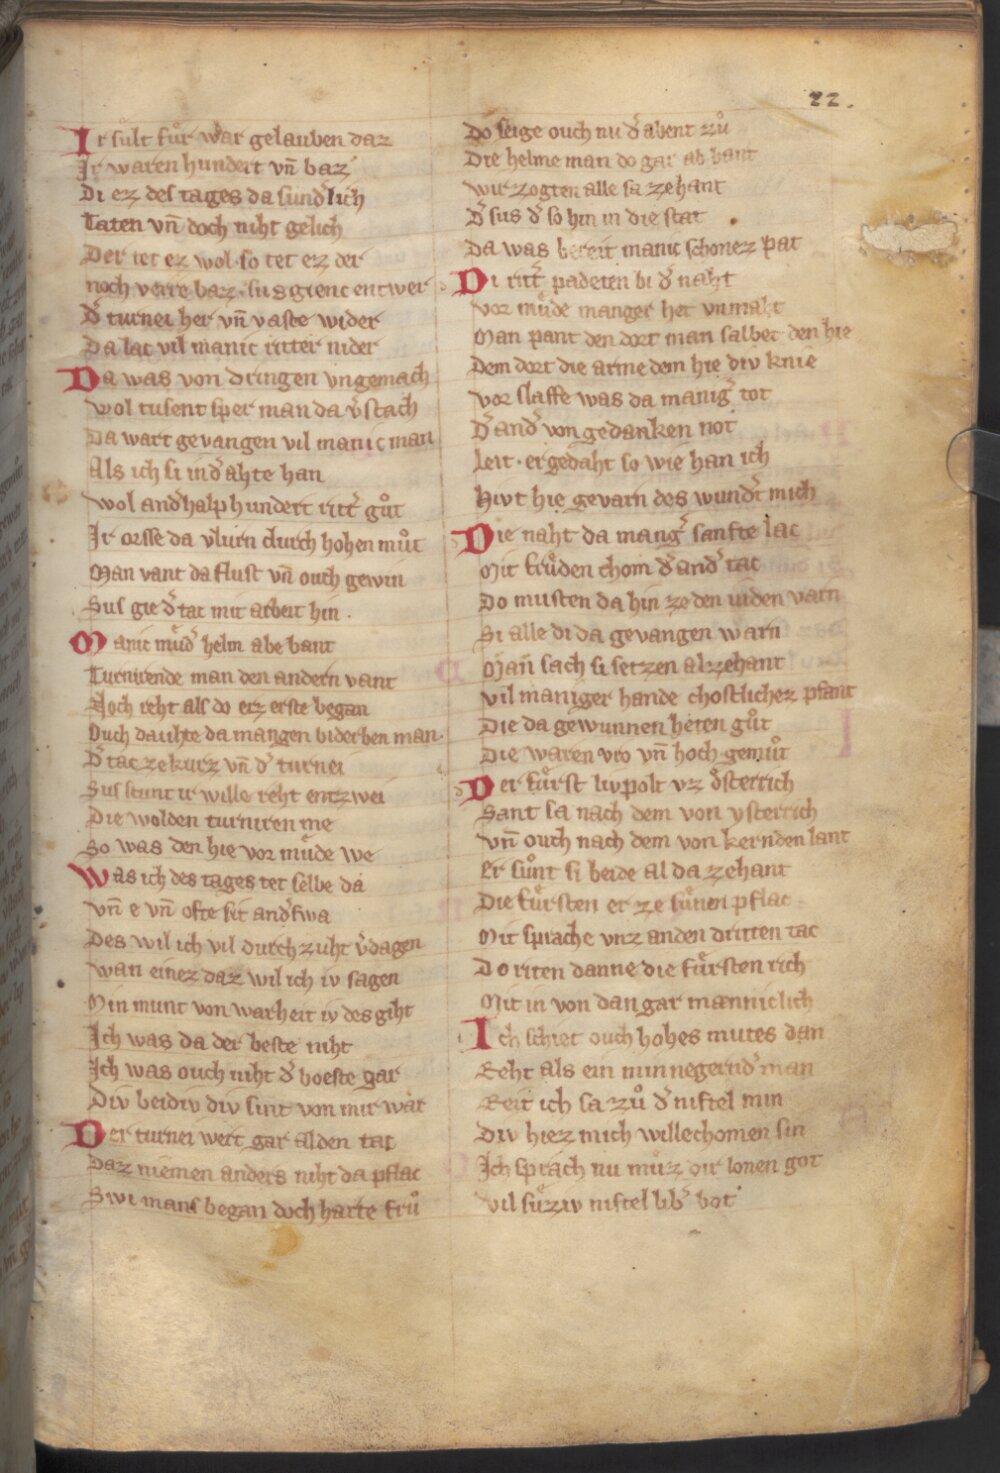 22.
Ir sult fuͦr war gelauben daz
Ir waren hundert vn̄ baz
Di ez des tages da sundˀlich
Taten vn̄ doch niht gelich
Der tet ez wol · so tet ez der
noch verre baz · sus gienc entwer
Dˀ turnei her vn̄ vaste wider
Da lac vil manic ritter nider
Da was von dringen vngemach
wol tusent sper man da vˀstach
Da wart gevangen vil manic man
Als ich si in dˀ ahte han
wol andˀhalp hundert rittˀ guͦt
Ir orsse da vlurn durch hohen muͦt
Man vant da flust vn̄ ouch gewin
Sus gie dˀ tac mit arbeit hin .
Manic muͤdˀ helm abe bant
Turnirende man den andern vant
Noch reht als do erz erste began
Ouch dauhte da mangen biderben man .
Dˀ tac ze kurz vn̄ dˀ turnei
Sus stunt ir wille reht entzwei
Die wolden turniren me
So was den hie vor muͤde we
Was ich des tages tet selbe da
vn̄ e vn̄ ofte sit andˀswa
Des wil ich vil durch zuht vˀdagen
wan einez daz wil ich iv sagen
Min munt von warheit iv des giht
Ich was da der beste niht
Ich was ouch niht dˀ boeste gar
Div beidiv div sint von mir war
Der turnei wert gar al den tac
Daz niemen anders niht da pflac
Swi mans began doch harte fruͦ
Do seige ouch nu dˀ abent zuͦ
Die helme man do gar ab bant
wir zogten alle sa zehant
Dˀ sus dˀ so hin in die stat
Da was bereit manic schonez pat
Di rittˀ padeten bi dˀ naht
vor muͤde manger het vnmaht
Man pant den dort man salbet den hie
Dem dort die arme dem hie div knie
vor slaffe was da manigˀ tot
Dˀ andˀ von gedanken not
Leit · er gedaht so wie han ich
Hivt hie gevarn des wundˀt mich
Die naht da mangˀ sanfte lac
Mit freuͤden chom dˀ andˀ tac
Do musten da hin ze den iuden varn
Si alle di da gevangen warn
Man sach si setzen alzehant
vil maniger hande chostlichez pfant
Die da gewunnen heten guͦt
Die waren vro vn̄ hoch gemuͦt
Der fuͤrst livpolt vz oͤsterrich
Sant sa nach dem von ysterrich
vn̄ ouch nach dem von kernden lant
Er suͦnt si beide al da zehant
Die fuͤrsten er ze suͤnen pflac
Mit sprache vnz an den dritten tac
Do riten danne die fuͤrsten rich
Mit in von dan gar manniclich
Ich schiet ouch hohes mutes dan
Reht als ein minnegerndˀ man
Reit ich sa zuͦ dˀ niftel min
Div hiez mich willechomen sin
Ich sprach nu muͤz dir lonen got
vil suͤziv niftel bot